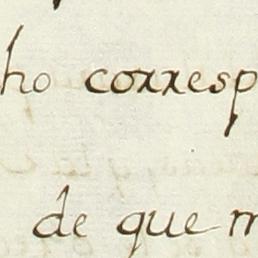 ho corresp
de que m